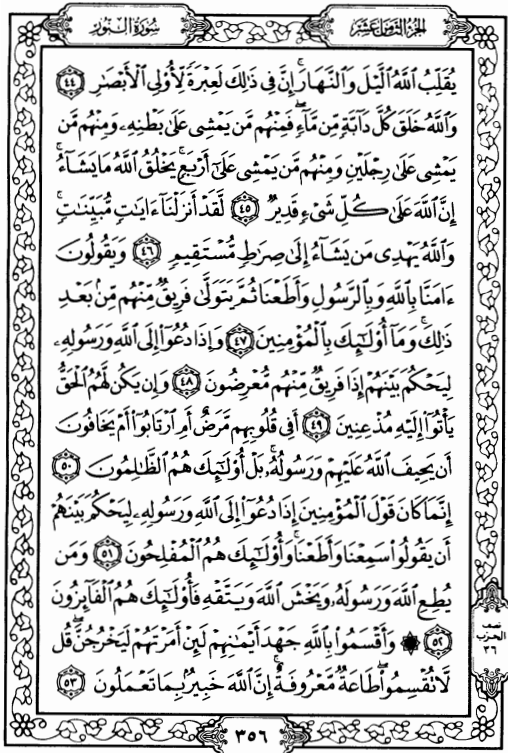 سُورَةُ النُّورِ
الجُزءُ الثَّامِنُ عَشَر
يُقَلِّبُ ٱللَّهُ ٱلَّيۡلَ وَٱلنَّهَارَۚ إِنَّ فِي ذَٰلِكَ لَعِبۡرَةٗ لِّأُوْلِي ٱلۡأَبۡصَٰرِ ٤٤
وَٱللَّهُ خَلَقَ كُلَّ دَآبَّةٖ مِّن مَّآءٖۖ فَمِنۡهُم مَّن يَمۡشِي عَلَىٰ بَطۡنِهِۦ وَمِنۡهُم مَّن
يَمۡشِي عَلَىٰ رِجۡلَيۡنِ وَمِنۡهُم مَّن يَمۡشِي عَلَىٰٓ أَرۡبَعٖۚ يَخۡلُقُ ٱللَّهُ مَا يَشَآءُۚ
إِنَّ ٱللَّهَ عَلَىٰ كُلِّ شَيۡءٖ قَدِيرٞ ٤٥ لَّقَدۡ أَنزَلۡنَآ ءَايَٰتٖ مُّبَيِّنَٰتٖۚ
وَٱللَّهُ يَهۡدِي مَن يَشَآءُ إِلَىٰ صِرَٰطٖ مُّسۡتَقِيمٖ ٤٦ وَيَقُولُونَ
ءَامَنَّا بِٱللَّهِ وَبِٱلرَّسُولِ وَأَطَعۡنَا ثُمَّ يَتَوَلَّىٰ فَرِيقٞ مِّنۡهُم مِّنۢ بَعۡدِ
ذَٰلِكَۚ وَمَآ أُوْلَٰٓئِكَ بِٱلۡمُؤۡمِنِينَ ٤٧ وَإِذَا دُعُوٓاْ إِلَى ٱللَّهِ وَرَسُولِهِۦ
لِيَحۡكُمَ بَيۡنَهُمۡ إِذَا فَرِيقٞ مِّنۡهُم مُّعۡرِضُونَ ٤٨ وَإِن يَكُن لَّهُمُ ٱلۡحَقُّ
يَأۡتُوٓاْ إِلَيۡهِ مُذۡعِنِينَ ٤٩ أَفِي قُلُوبِهِم مَّرَضٌ أَمِ ٱرۡتَابُوٓاْ أَمۡ يَخَافُونَ
أَن يَحِيفَ ٱللَّهُ عَلَيۡهِمۡ وَرَسُولُهُۥۚ بَلۡ أُوْلَٰٓئِكَ هُمُ ٱلظَّٰلِمُونَ ٥٠
إِنَّمَا كَانَ قَوۡلَ ٱلۡمُؤۡمِنِينَ إِذَا دُعُوٓاْ إِلَى ٱللَّهِ وَرَسُولِهِۦ لِيَحۡكُمَ بَيۡنَهُمۡ
أَن يَقُولُواْ سَمِعۡنَا وَأَطَعۡنَاۚ وَأُوْلَٰٓئِكَ هُمُ ٱلۡمُفۡلِحُونَ ٥١ وَمَن
يُطِعِ ٱللَّهَ وَرَسُولَهُۥ وَيَخۡشَ ٱللَّهَ وَيَتَّقۡهِ فَأُوْلَٰٓئِكَ هُمُ ٱلۡفَآئِزُونَ
٥٢ ۞ وَأَقۡسَمُواْ بِٱللَّهِ جَهۡدَ أَيۡمَٰنِهِمۡ لَئِنۡ أَمَرۡتَهُمۡ لَيَخۡرُجُنَّۖ قُل
لَّا تُقۡسِمُواْۖ طَاعَةٞ مَّعۡرُوفَةٌۚ إِنَّ ٱللَّهَ خَبِيرُۢ بِمَا تَعۡمَلُونَ ٥٣
نصف
الحزب
٣٦
٣٥٦